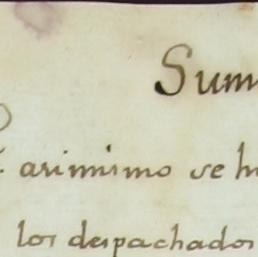 Sum
asimismo se h
los despachados